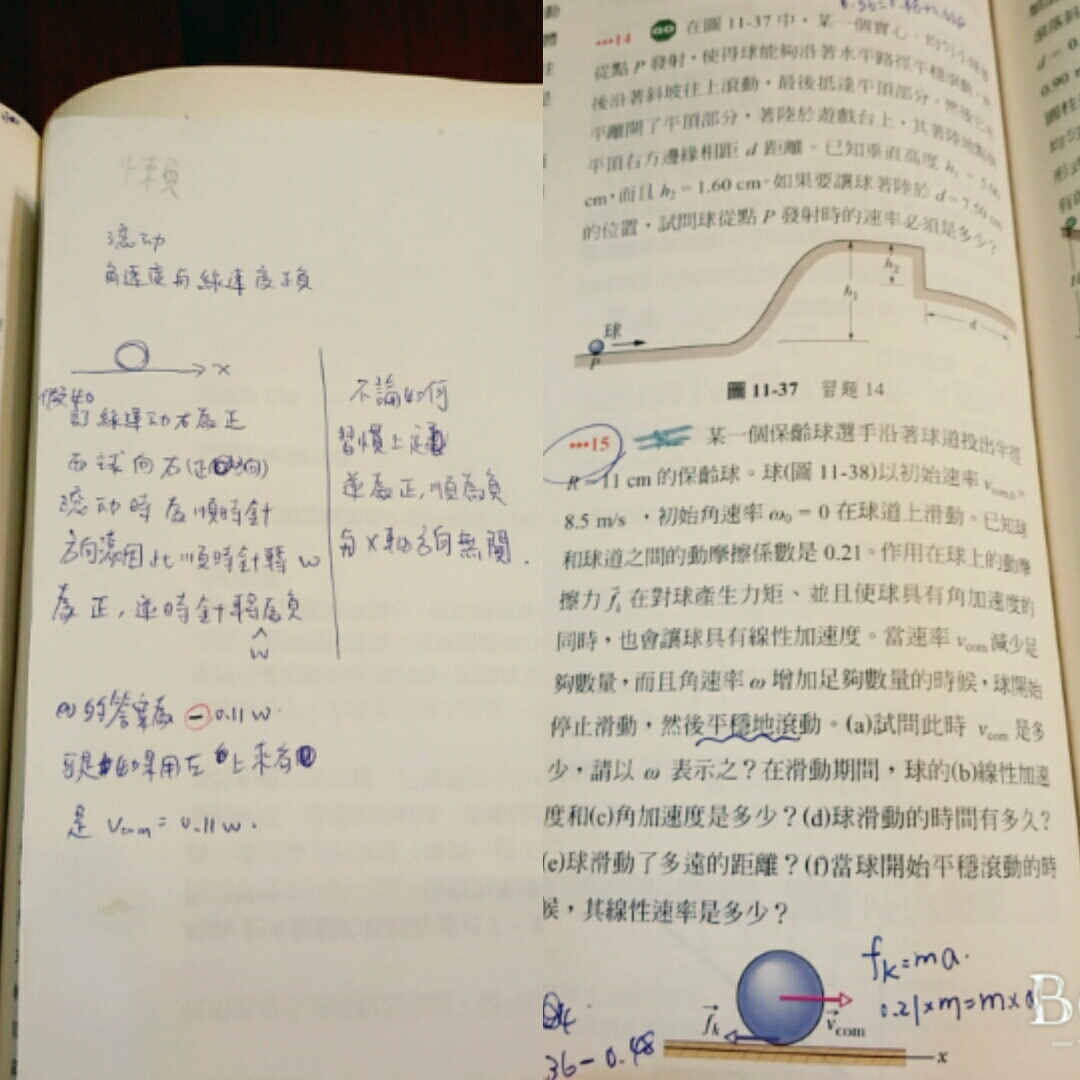 懶
滾动
角速度与線速度正負
x
假如
訂線運动右為正
而球向右(正方向)
滾动時為順時針
方向滾因此順時針轉 w
為正,逆時針轉為負
w
(a)的答案為 -0.11 w.
可是如果用左上來看
是 Vcom = 0.11 w.
不論如何
習慣上定義
逆為正,順為負
与 x 軸方向無關.
•••14 GO 在圖 11-37 中,某一個實心、均勻小球
從點 P 發射,使得球能夠沿著水平路徑平穩滾動,
後沿著斜坡往上滾動,最後抵達平頂部分。然後它
平離開了平頂部分,著陸於遊戲台上,其著陸地點
平頂右方邊緣相距 d 距離。已知垂直高度 h₁ = 5.00
cm,而且 h₂ = 1.60 cm。如果要讓球著陸於 d = 7.50 cm
的位置,試問球從點 P 發射時的速率必須是多少?
h₂
h₁
d
球
P
圖 11-37 習題 14
•••15 某一個保齡球選手沿著球道投出半徑
R = 11 cm 的保齡球。球(圖 11-38)以初始速率 vcom,0 =
8.5 m/s ,初始角速率 ω₀ = 0 在球道上滑動。已知球
和球道之間的動摩擦係數是 0.21。作用在球上的動摩
擦力 f⃗k 在對球產生力矩、並且使球具有角加速度的
同時,也會讓球具有線性加速度。當速率 vcom 減少足
夠數量,而且角速率 ω 增加足夠數量的時候,球開始
停止滑動,然後平穩地滾動。(a)試問此時 vcom 是多
少,請以 ω 表示之?在滑動期間,球的(b)線性加速
度和(c)角加速度是多少?(d)球滑動的時間有多久?
(e)球滑動了多遠的距離?(f)當球開始平穩滾動的時
候,其線性速率是多少?
fk = ma.
0.21xm = m x
f⃗k
v⃗com
x
36 - 0.48